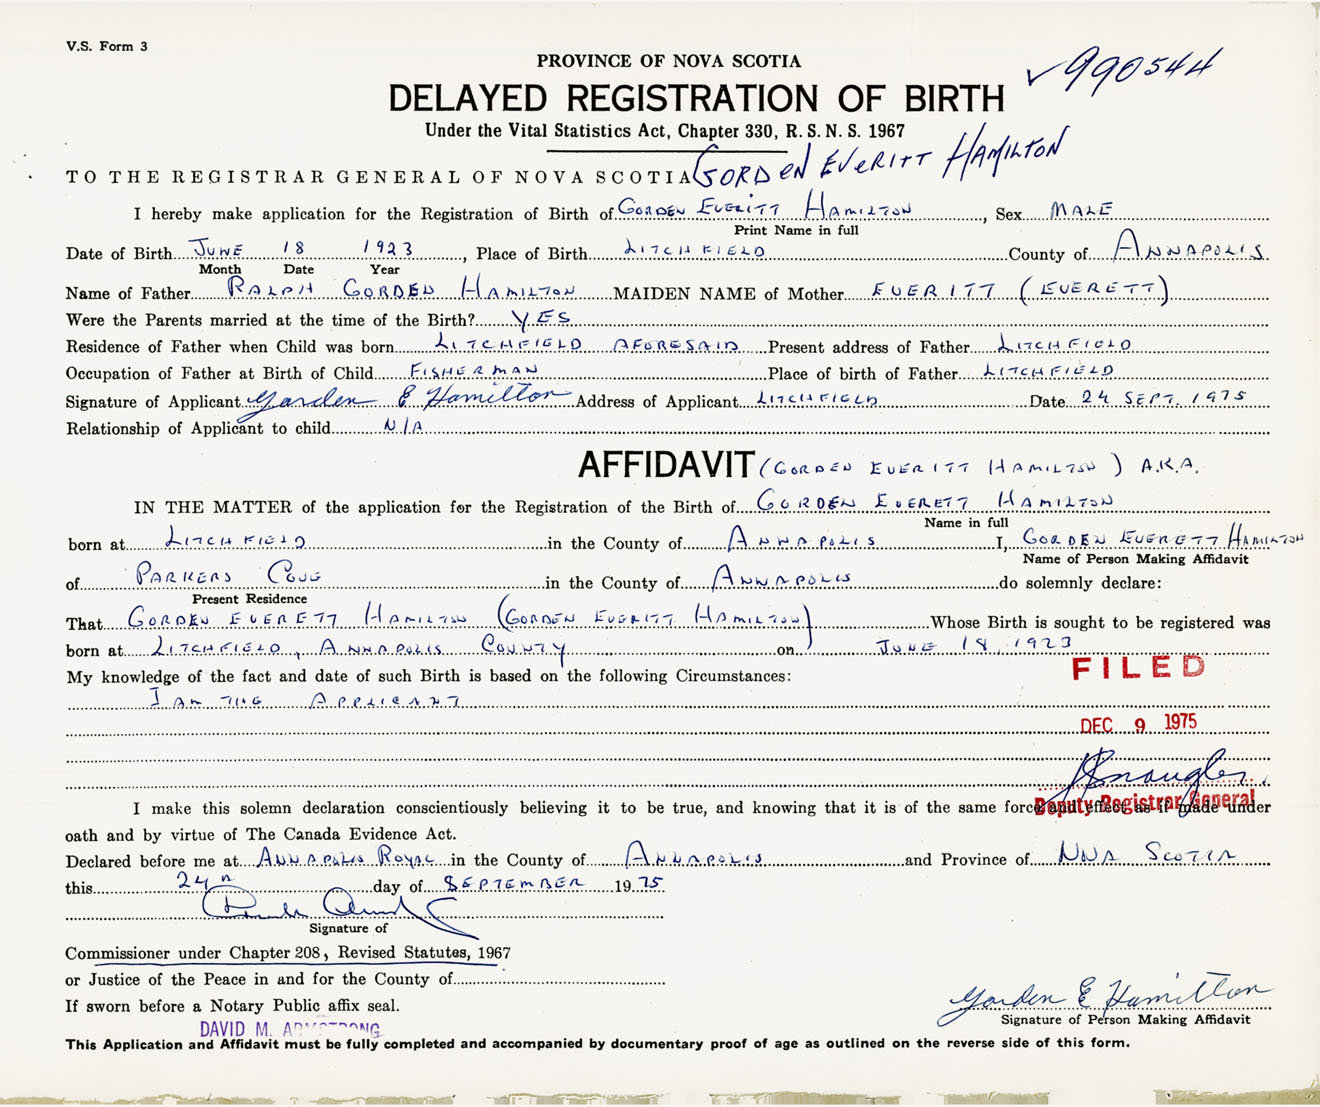 V.S. Form 3
PROVINCE OF NOVA SCOTIA
990544
DELAYED REGISTRATION OF BIRTH
Under the Vital Statistics Act, Chapter 330, R.S.N.S. 1967
TO THE REGISTRAR GENERAL OF NOVA SCOTIA GORDEN EVERITT HAMILTON
I hereby make application for the Registration of Birth of GORDEN EVERITT HAMILTON, Sex MALE
Print Name in full
Date of Birth JUNE 18 1923, Place of Birth LITCHFIELD County of ANNAPOLIS
Month Date Year
Name of Father RALPH GORDEN HAMILTON MAIDEN NAME of Mother EVERITT (EVERETT)
Were the Parents married at the time of the Birth? YES
Residence of Father when Child was born LITCHFIELD AFORESAID Present address of Father LITCHFIELD
Occupation of Father at Birth of Child FISHERMAN Place of birth of Father LITCHFIELD
Signature of Applicant Gorden E Hamilton Address of Applicant LITCHFIELD Date 24 SEPT. 1975
Relationship of Applicant to child N/A
AFFIDAVIT (GORDEN EVERITT HAMILTON) A.K.A.
IN THE MATTER of the application for the Registration of the Birth of GORDEN EVERETT HAMILTON
Name in full
born at LITCHFIELD in the County of ANNAPOLIS I, GORDEN EVERETT HAMILTON
Name of Person Making Affidavit
of PARKERS COVE in the County of ANNAPOLIS do solemnly declare:
Present Residence
That GORDEN EVERETT HAMILTON (GORDEN EVERITT HAMILTON) Whose Birth is sought to be registered was
born at LITCHFIELD, ANNAPOLIS COUNTY on JUNE 18, 1923
My knowledge of the fact and date of such Birth is based on the following Circumstances:
FILED
I AM THE APPLICANT
DEC 9 1975
I make this solemn declaration conscientiously believing it to be true, and knowing that it is of the same force and effect as if made under
Deputy Registrar General
oath and by virtue of The Canada Evidence Act.
Declared before me at ANNAPOLIS ROYAL in the County of ANNAPOLIS and Province of NOVA SCOTIA
this 24th day of SEPTEMBER 1975
Signature of
Commissioner under Chapter 208, Revised Statutes, 1967
or Justice of the Peace in and for the County of
If sworn before a Notary Public affix seal.
Gorden E Hamilton
Signature of Person Making Affidavit
DAVID M. ARMSTRONG
This Application and Affidavit must be fully completed and accompanied by documentary proof of age as outlined on the reverse side of this form.